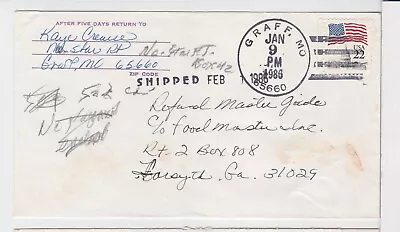 AFTER FIVE DAYS RETURN TO
Kaye
No Star Rt
Graff, MO 65660
ZIP CODE
Box 42
SHIPPED FEB
GRAFF, MO
JAN
9
PM
1986
65660
USA
22
Refund Master Guide
c/o Food Master Inc.
Rt. 2 Box 808
Forsyth, Ga. 31029